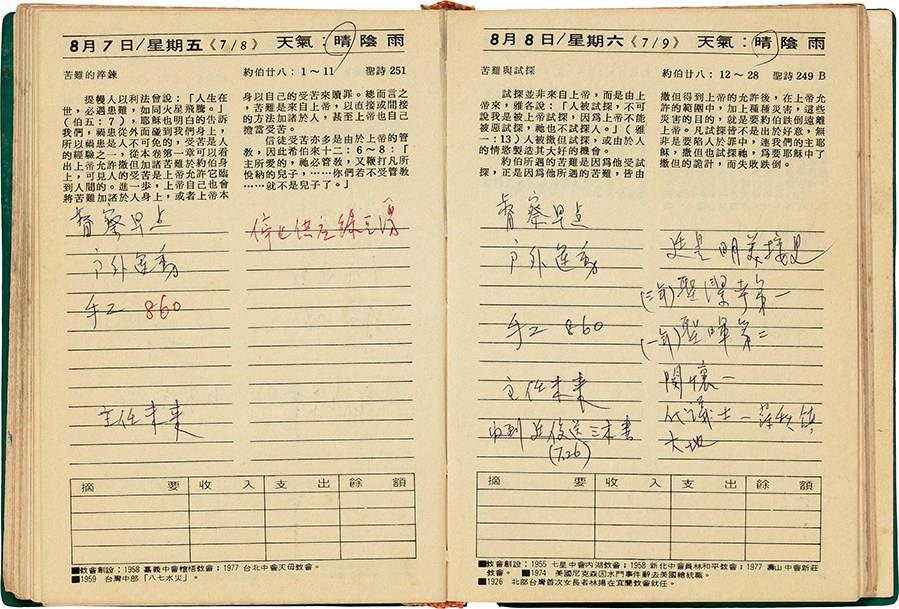 8月7日/星期五《7/8》 天氣：晴陰雨
苦難的淬鍊 約伯廿八：1～11 聖詩 251
提幔人以利法曾說：「人生在
世，必遇患難，如同火星飛騰。」
（伯五：7），耶穌也明白的告訴
我們，禍患從外面碰到我們身上，
所以禍患是人不可免的，受苦是人
的經驗之一，從本卷第一章可以看
出上帝允許撒但加諸苦難於約伯身
上，可見人的受苦是上帝允許它臨
到人間的。進一步，上帝自己也會
將苦難加諸於人身上，或者上帝本
身以自己的受苦來贖罪。總而言之
，苦難是來自上帝，以直接或間接
的方法加諸於人，甚至上帝也自己
擔當受苦。
信徒受苦亦多是由於上帝的管
教，因此希伯來十二：6～8：「
主所愛的，祂必管教，又鞭打凡所
悅納的兒子，⋯⋯你們若不受管教
⋯⋯就不是兒子了。」
早点
戶外運動
手工 860
主任未來
停止供应
摘要 收入 支出 餘額
■教會創設：1958 嘉義中會檨梧教會；1977 台北中會天母教會。
■1959 台灣中部「八七水災」。
8月8日/星期六《7/9》 天氣：晴陰雨
苦難與試探 約伯廿八：12～28 聖詩 249 B
試探並非來自上帝，而是由上
帝來，雅各說：「人被試探，不可
說我是被上帝試探，因爲上帝不能
被惡試探，祂也不試探人。」（雅
一：13）人被撒但試探，或由於人
的情慾製造其大好的機會。
約伯所遇的苦難是因爲他受試
探，正是因爲他所遇的苦難，皆由
撒但得到上帝的允許後，在上帝允
許的範圍中，加上種種災害，這些
災害的目的，就是要約伯跌倒遠離
上帝。凡試探皆不是出於好意，無
非是要陷人於罪中，連我們的主耶
穌，撒但也試探祂，爲要耶穌中了
撒但的詭計，而失敗跌倒。
早点
戶外運動
手工 860
主任未來
收到 送三本書
(7.26)
明美接見
第一
第二
關懷一
代議士一
大地
摘要 收入 支出 餘額
■教會創設：1955 七星中會內湖教會；1958 新化中會員林和平教會；1977 壽山中會新莊
教會。 ■1974 美國尼克森因水門事件辭去美國總統職。
■1926 北部台灣首次女長老林揚在宜蘭教會就任。